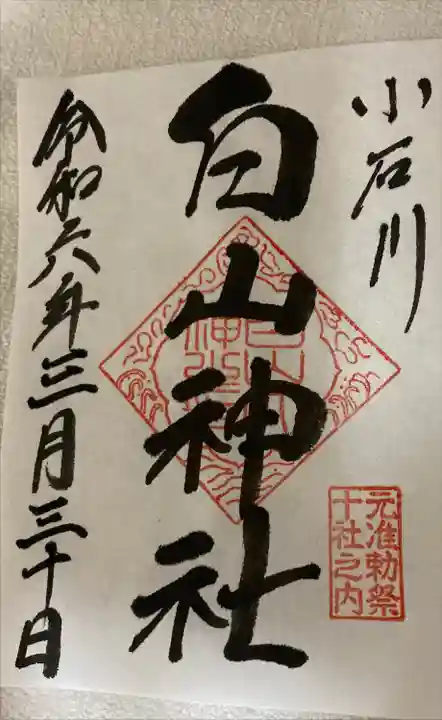 小石川
白山神社
白山神社
元准勅祭
十社之内
令和六年三月三十日